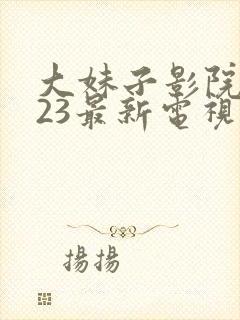 大妹子影院
23最新電視
揚揚